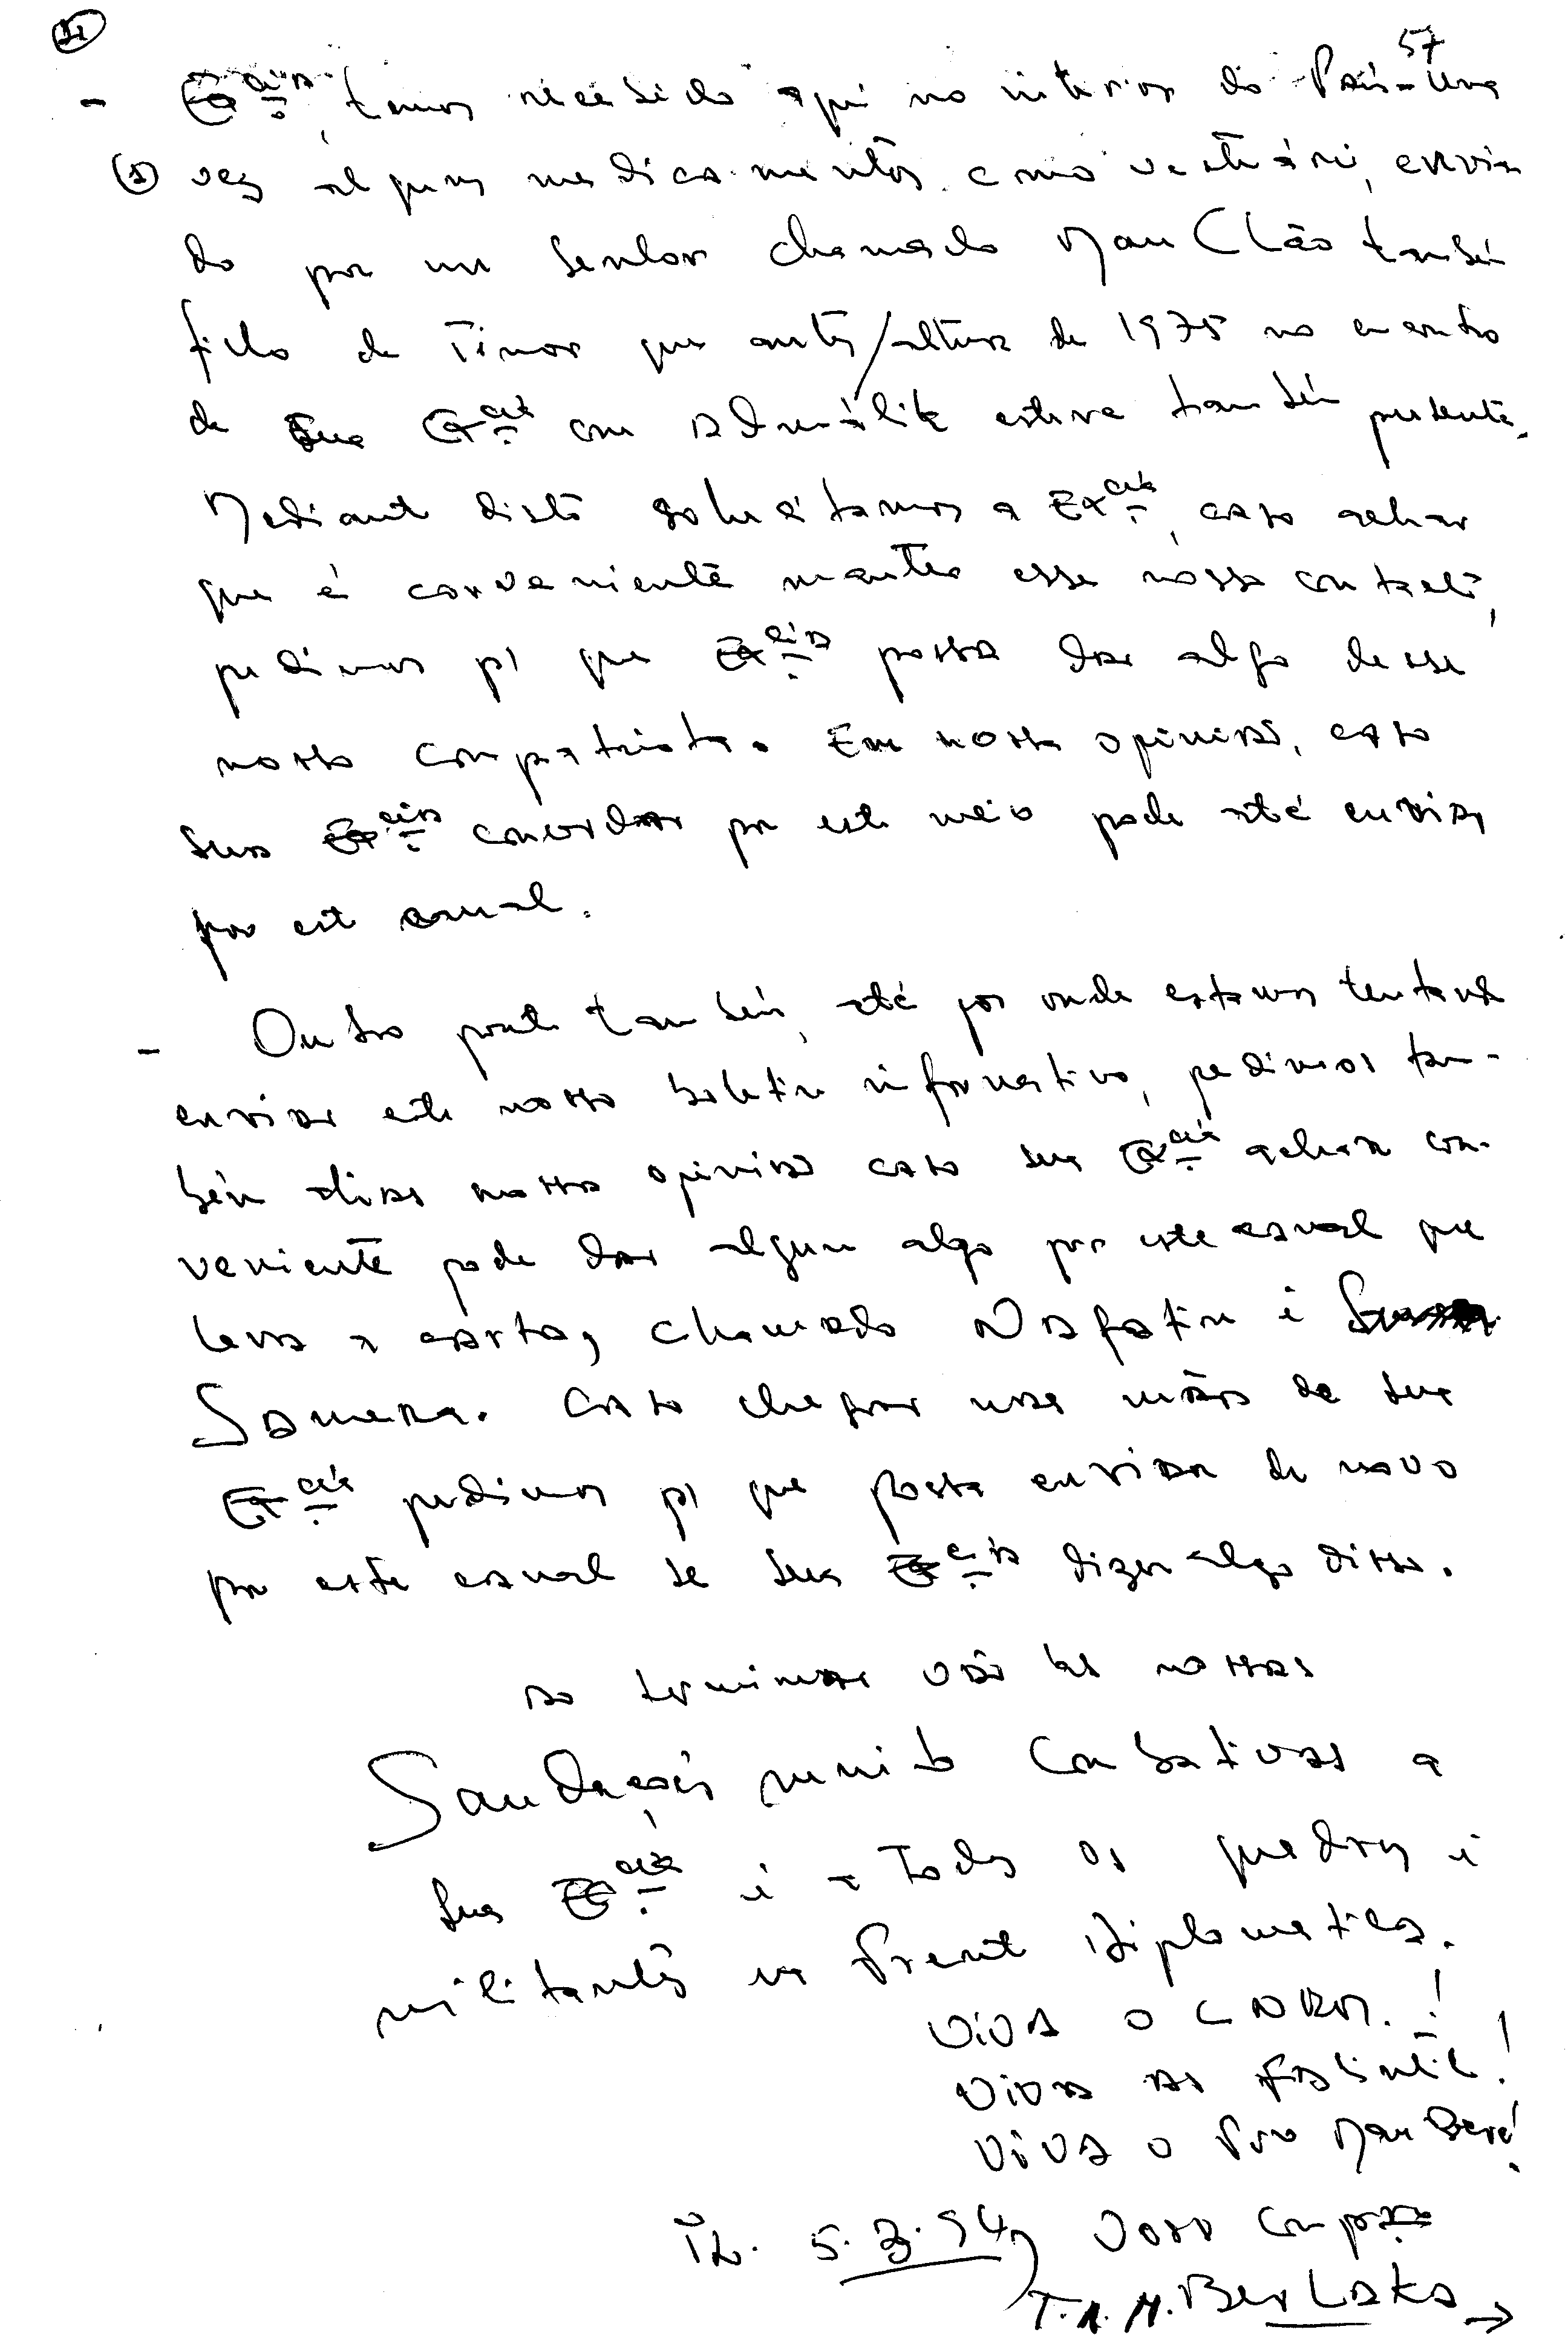 57
- Ex.cia, temos recebido aqui no interior do País uma
(1) vez alguns medicamentos como vestuário, envia
do por um senhor chamado Mau Clão também
filho de Timor que antes/altura de 1975 no encontro
de Sua Ex.cia com esteve também presente.
Mediante disto solicitamos a Ex.cia, caso achar
que é conveniente manter esse nosso contacto,
pedimos p/ que Ex.cia possa dar algo desse
nosso compatriota. Em nossa opinião, caso
Sua Ex.cia concordar por este meio pode até enviar
por este canal.
- Outro ponto também, até por onde estamos tentando
enviar este nosso boletim informativo, pedimos tam-
bém aliás nossa opinião caso sua Ex.cia achar con-
veniente pode dar algum algo por este canal que
leva a carta, chamado é
Samera. Caso chegar nas mãos de sua
Ex.cia pedimos p/ que possa enviar de novo
por este canal se sua Ex.cia dizer algo disso.
Ao terminar vão as nossas
Saudações muito combativas a
Sua Ex.cia e a Todos os quadros e
militantes na Frente Diplomatica.
Viva o CNRM.!
Viva as Falintil!
Viva o Povo Maubere!
T.L. 5.3.94, Vosso Comp
T.A.M. Ber Laka →